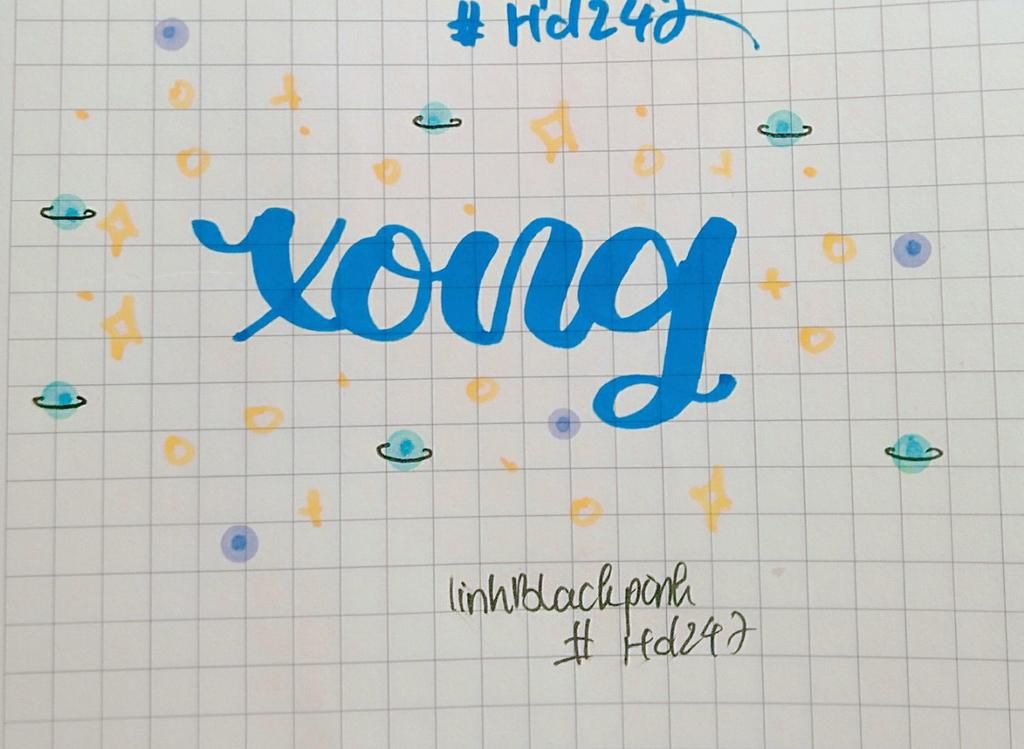 # Hd247
xong
linhBlackpink
# Hd247